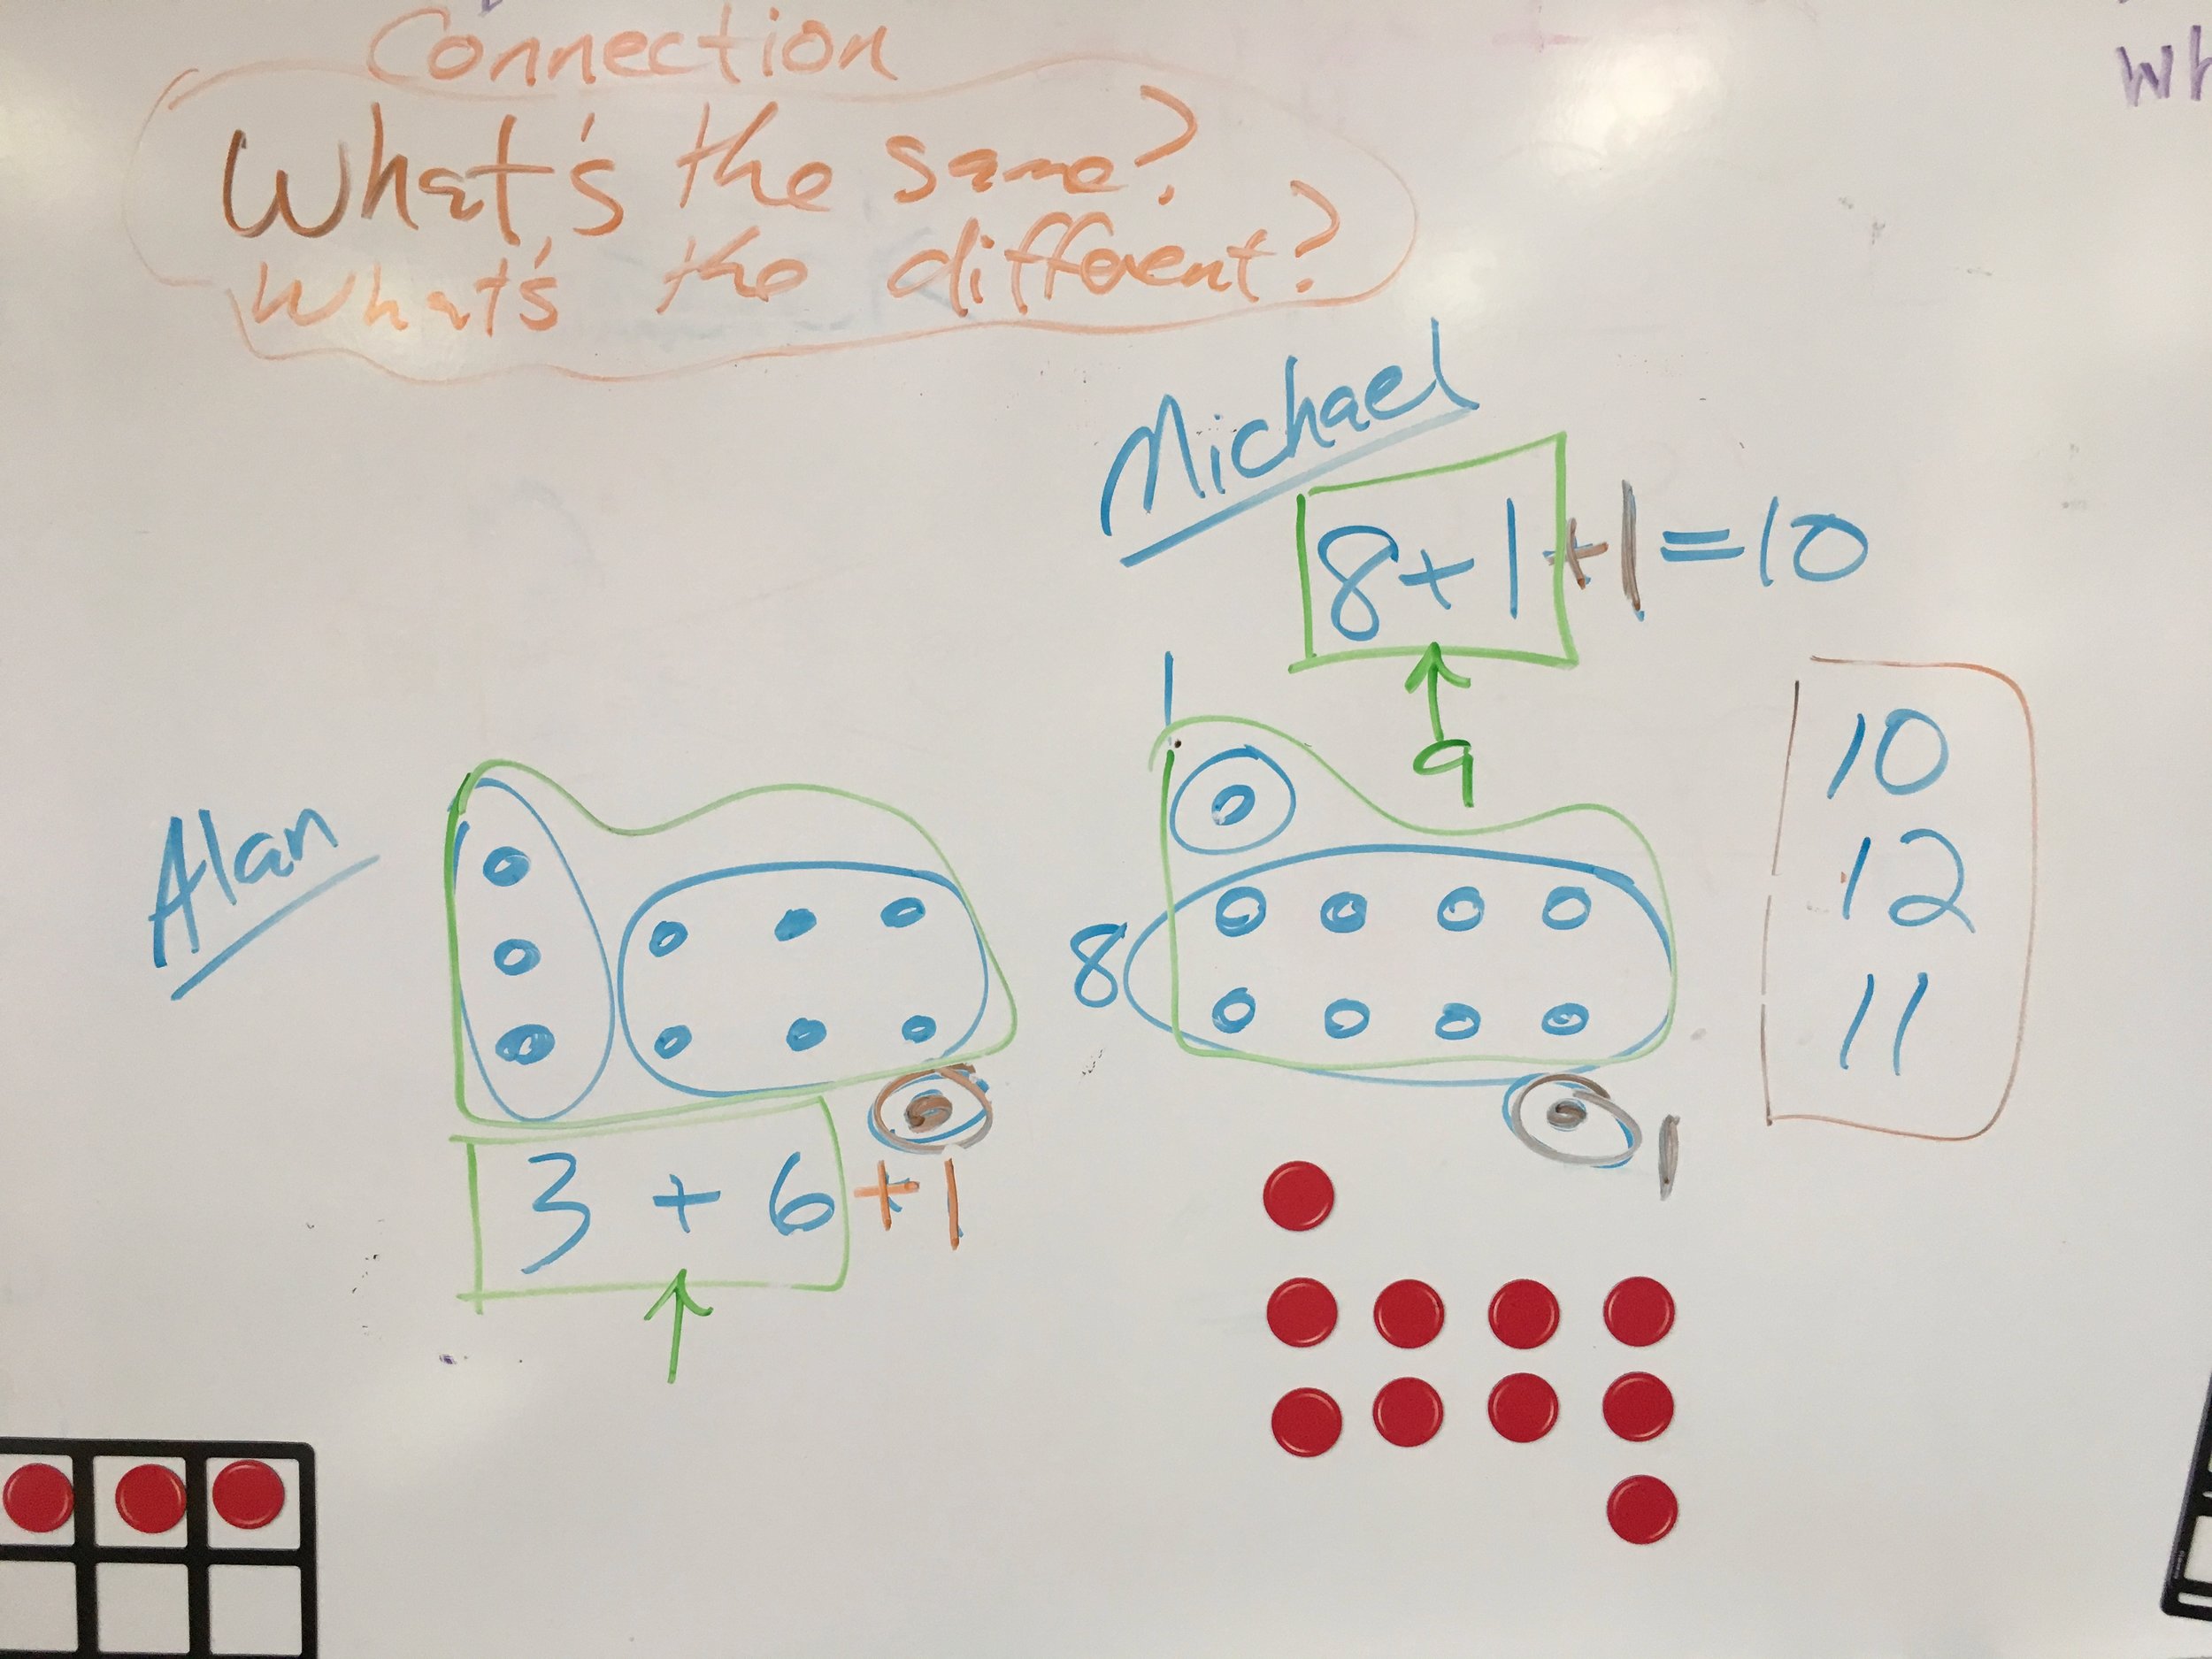 Connection
What's the same?
What's the different?
Michael
8+1+1=10
9
1
8
1
Alan
3 + 6 +1
10
12
11